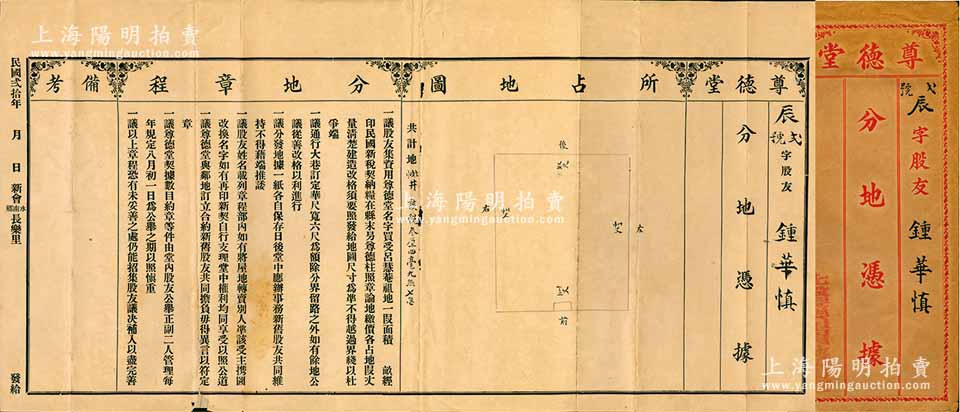 上海陽明拍賣
www.yangmingauction.com
尊德堂
分地憑據
號
辰字股友 鍾華慎
尊德堂
辰
號
字股友 鍾華慎
分地憑據
所占地圖
後
左
右
前
分地章程
共計地
一議股友集資用尊德堂名字買受呂慧菴祖地一段面積 畝經
印民國新稅契納糧在縣末另尊德柱照章論地繳價各占地段丈
量清楚建造改格須要照發給地圖尺寸爲準不得越過界綫以杜
爭端
一議通行大巷訂定華尺寬六尺爲額除分界留路之外如有餘地公
議從善改格以利進行
一議分發地據一紙各自保存日後堂中應辦事務新舊股友共同維
持不得藉端推諉
一議股友姓名載列章程部內如有將屋地轉賣別人準該受主携圖
改換名字如有再印新契自行支理堂中權利均同享受以照公道
一議尊德堂與鄰地訂立合約新舊股友共同擔負毋得異言以符定
章
一議尊德堂契據數目約章等件由堂內股友公舉正副二人管理每
年規定八月初一日爲公舉之期以照慎重
一議以上章程恐有未妥善之處仍能招集股友議決補入以盡完善
備考
民國貳拾年 月 日 新會水南鄉長樂里 發給
上海陽明拍賣
www.yangmingauction.com